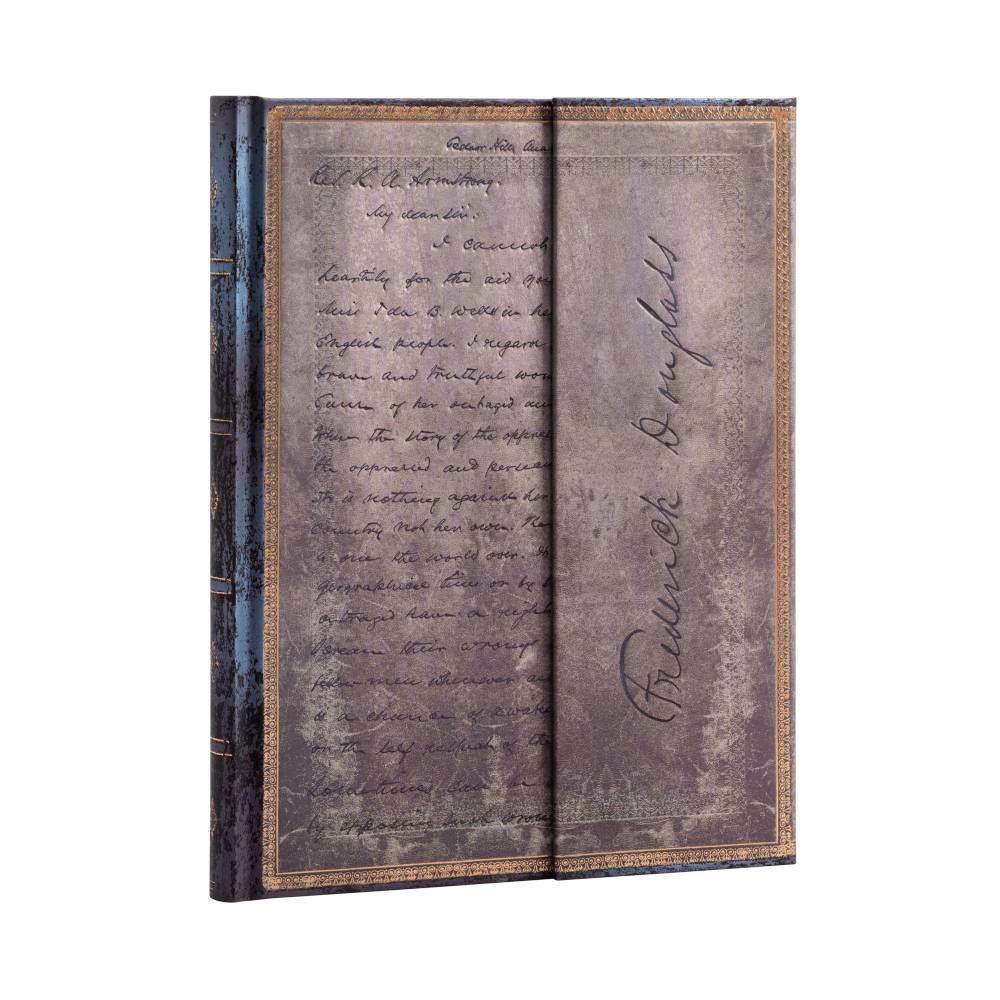 Cedar Hill Ana
Rev. R. A. Armstrong.
My dear Sir:
I cannot
heartily for the aid you
Miss Ida B. Wells in he
English people. I regard
brave and truthful wom
Cause of her outraged an
When the story of the oppres
the oppressed and persecu
It is nothing against her
country not her own. The
is one the world over.
geographical lines or by
outraged have a right
because their wrongs
fellow men wherever
is a chance of awake
on the self respect of the
Sometimes
by opposing such wrong
Frederick Douglass